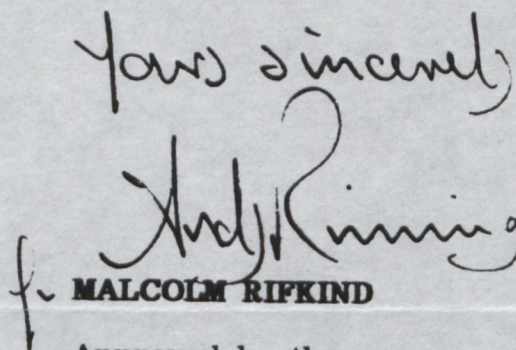 Yours sincerely
Andy Rinning
MALCOLM RIFKIND